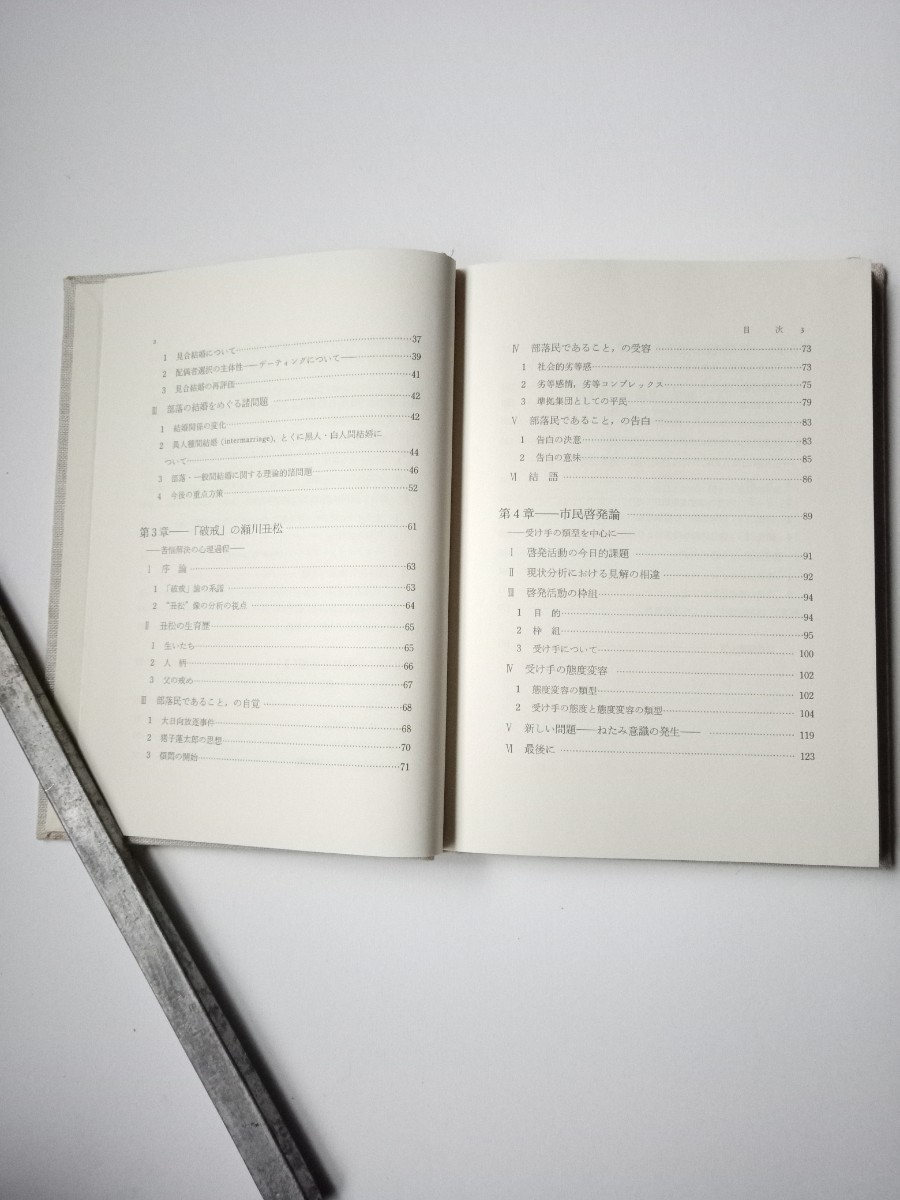 2
1 見合結婚について……37
2 配偶者選択の主体性——デーティングについて——……39
3 見合結婚の再評価……41
Ⅲ 部落の結婚をめぐる諸問題……42
1 結婚関係の変化……42
2 異人種間結婚 (intermarriage), とくに黒人・白人間結婚に
ついて……44
3 部落・一般間結婚に関する理論的諸問題……46
4 今後の重点方策……52
第3章——「破戒」の瀬川丑松……61
——苦悩解決の心理過程——
Ⅰ 序 論……63
1 「破戒」論の系譜……63
2 “丑松”像の分析の視点……64
Ⅱ 丑松の生育歴……65
1 生いたち……65
2 人 柄……66
3 父の戒め……67
Ⅲ 部落民であること,の自覚……68
1 大日向放逐事件……68
2 猪子蓮太郎の思想……70
3 煩悶の開始……71
目 次 3
Ⅳ 部落民であること,の受容……73
1 社会的劣等感……73
2 劣等感情,劣等コンプレックス……75
3 準拠集団としての平民……79
Ⅴ 部落民であること,の告白……83
1 告白の決意……83
2 告白の意味……85
Ⅵ 結 語……86
第4章——市民啓発論……89
——受け手の類型を中心に——
Ⅰ 啓発活動の今日的課題……91
Ⅱ 現状分析における見解の相違……92
Ⅲ 啓発活動の枠組……94
1 目 的……94
2 枠 組……95
3 受け手について……100
Ⅳ 受け手の態度変容……102
1 態度変容の類型……102
2 受け手の態度と態度変容の類型……104
Ⅴ 新しい問題——ねたみ意識の発生——……119
Ⅵ 最後に……123